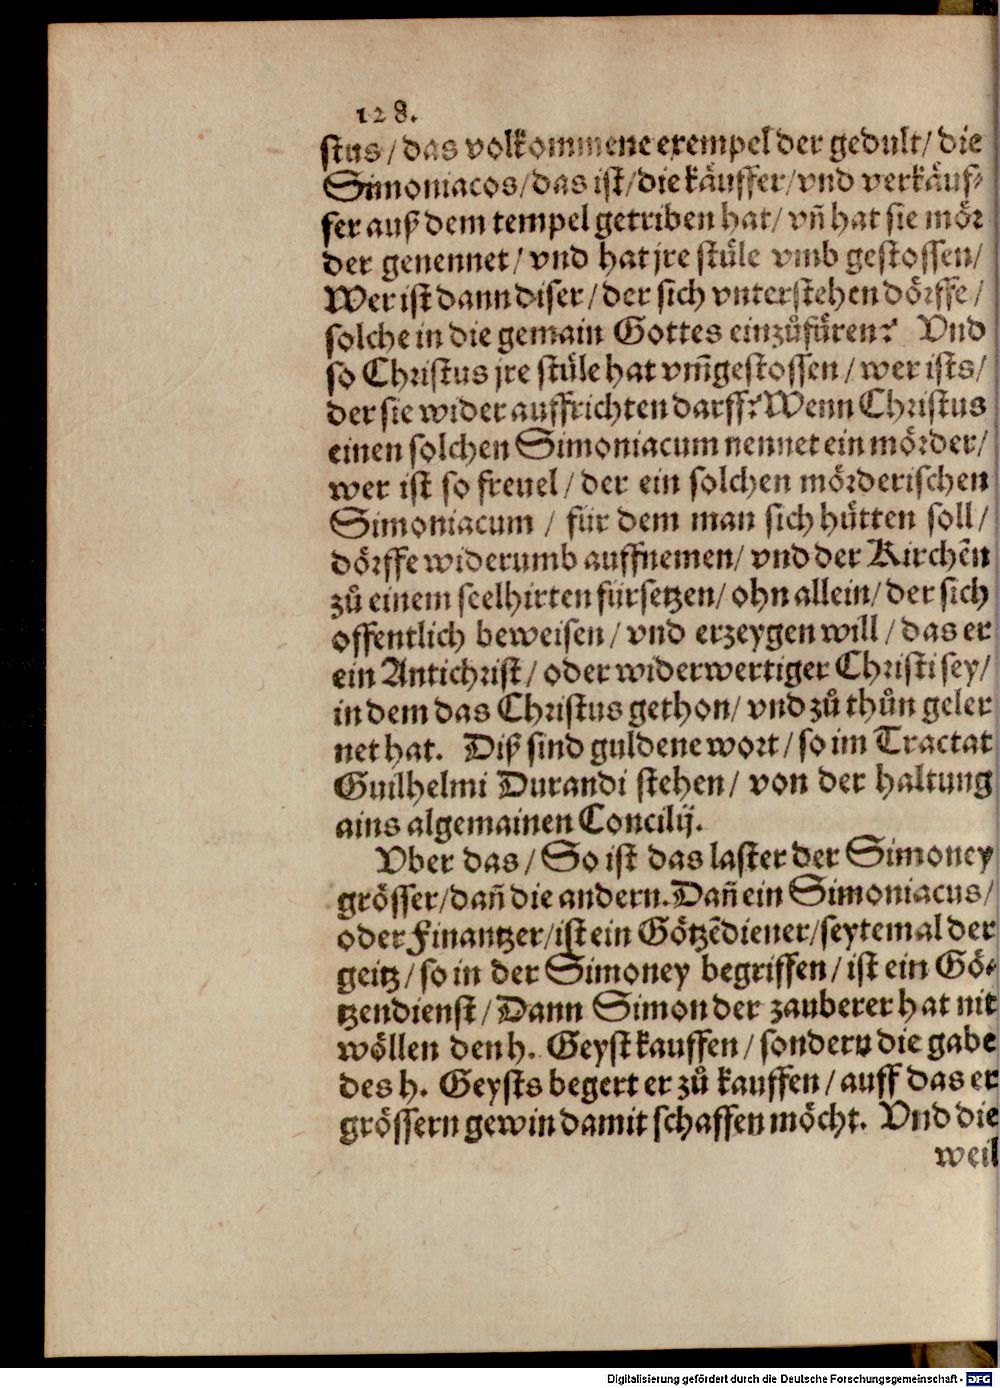 128.
stus/das volkommene exempel der gedult/die
Simoniacos/das ist/die käuffer/vnd verkäuf-
fer auß dem tempel getriben hat/vñ hat sie mör
der genennet/vnd hat jre stüle vmb gestossen/
Wer ist dann diser/der sich vnterstehen dörffe/
solche in die gemain Gottes einzůfüren? Vnd
so Christus jre stüle hat vm̃gestossen/wer ists/
der sie wider auffrichten darff? Wenn Christus
einen solchen Simoniacum nennet ein mörder/
wer ist so freuel/der ein solchen mörderischen
Simoniacum/für dem man sich hütten soll/
dörffe widerumb auffnemen/vnd der Kirchẽn
zů einem seelhirten fürsetzen/ohn allein/der sich
offentlich beweisen/vnd erzeygen will/das er
ein Antichrist/oder widerwertiger Christi sey/
in dem das Christus gethon/vnd zů thůn geler
net hat. Diß sind guldene wort/so im Tractat
Guilhelmi Durandi stehen/von der haltung
ains algemainen Concilij.
Vber das/So ist das laster der Simoney
grösser/dañ die andern. Dañ ein Simoniacus/
oder Finantzer/ist ein Götzẽdiener/seytemal der
geitz/so in der Simoney begriffen/ist ein Gö-
tzendienst/Dann Simon der zauberer hat nit
wöllen den h. Geyst kauffen/sondern die gabe
des h. Geysts begert er zů kauffen/auff das er
grössern gewin damit schaffen möcht. Vnd die
weil
Digitalisierung gefördert durch die Deutsche Forschungsgemeinschaft - DFG